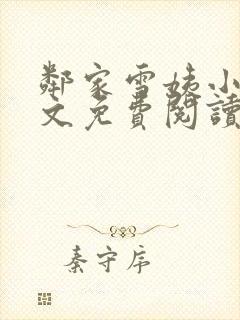 鄰家雪姨小
文免費閱讀
秦守序